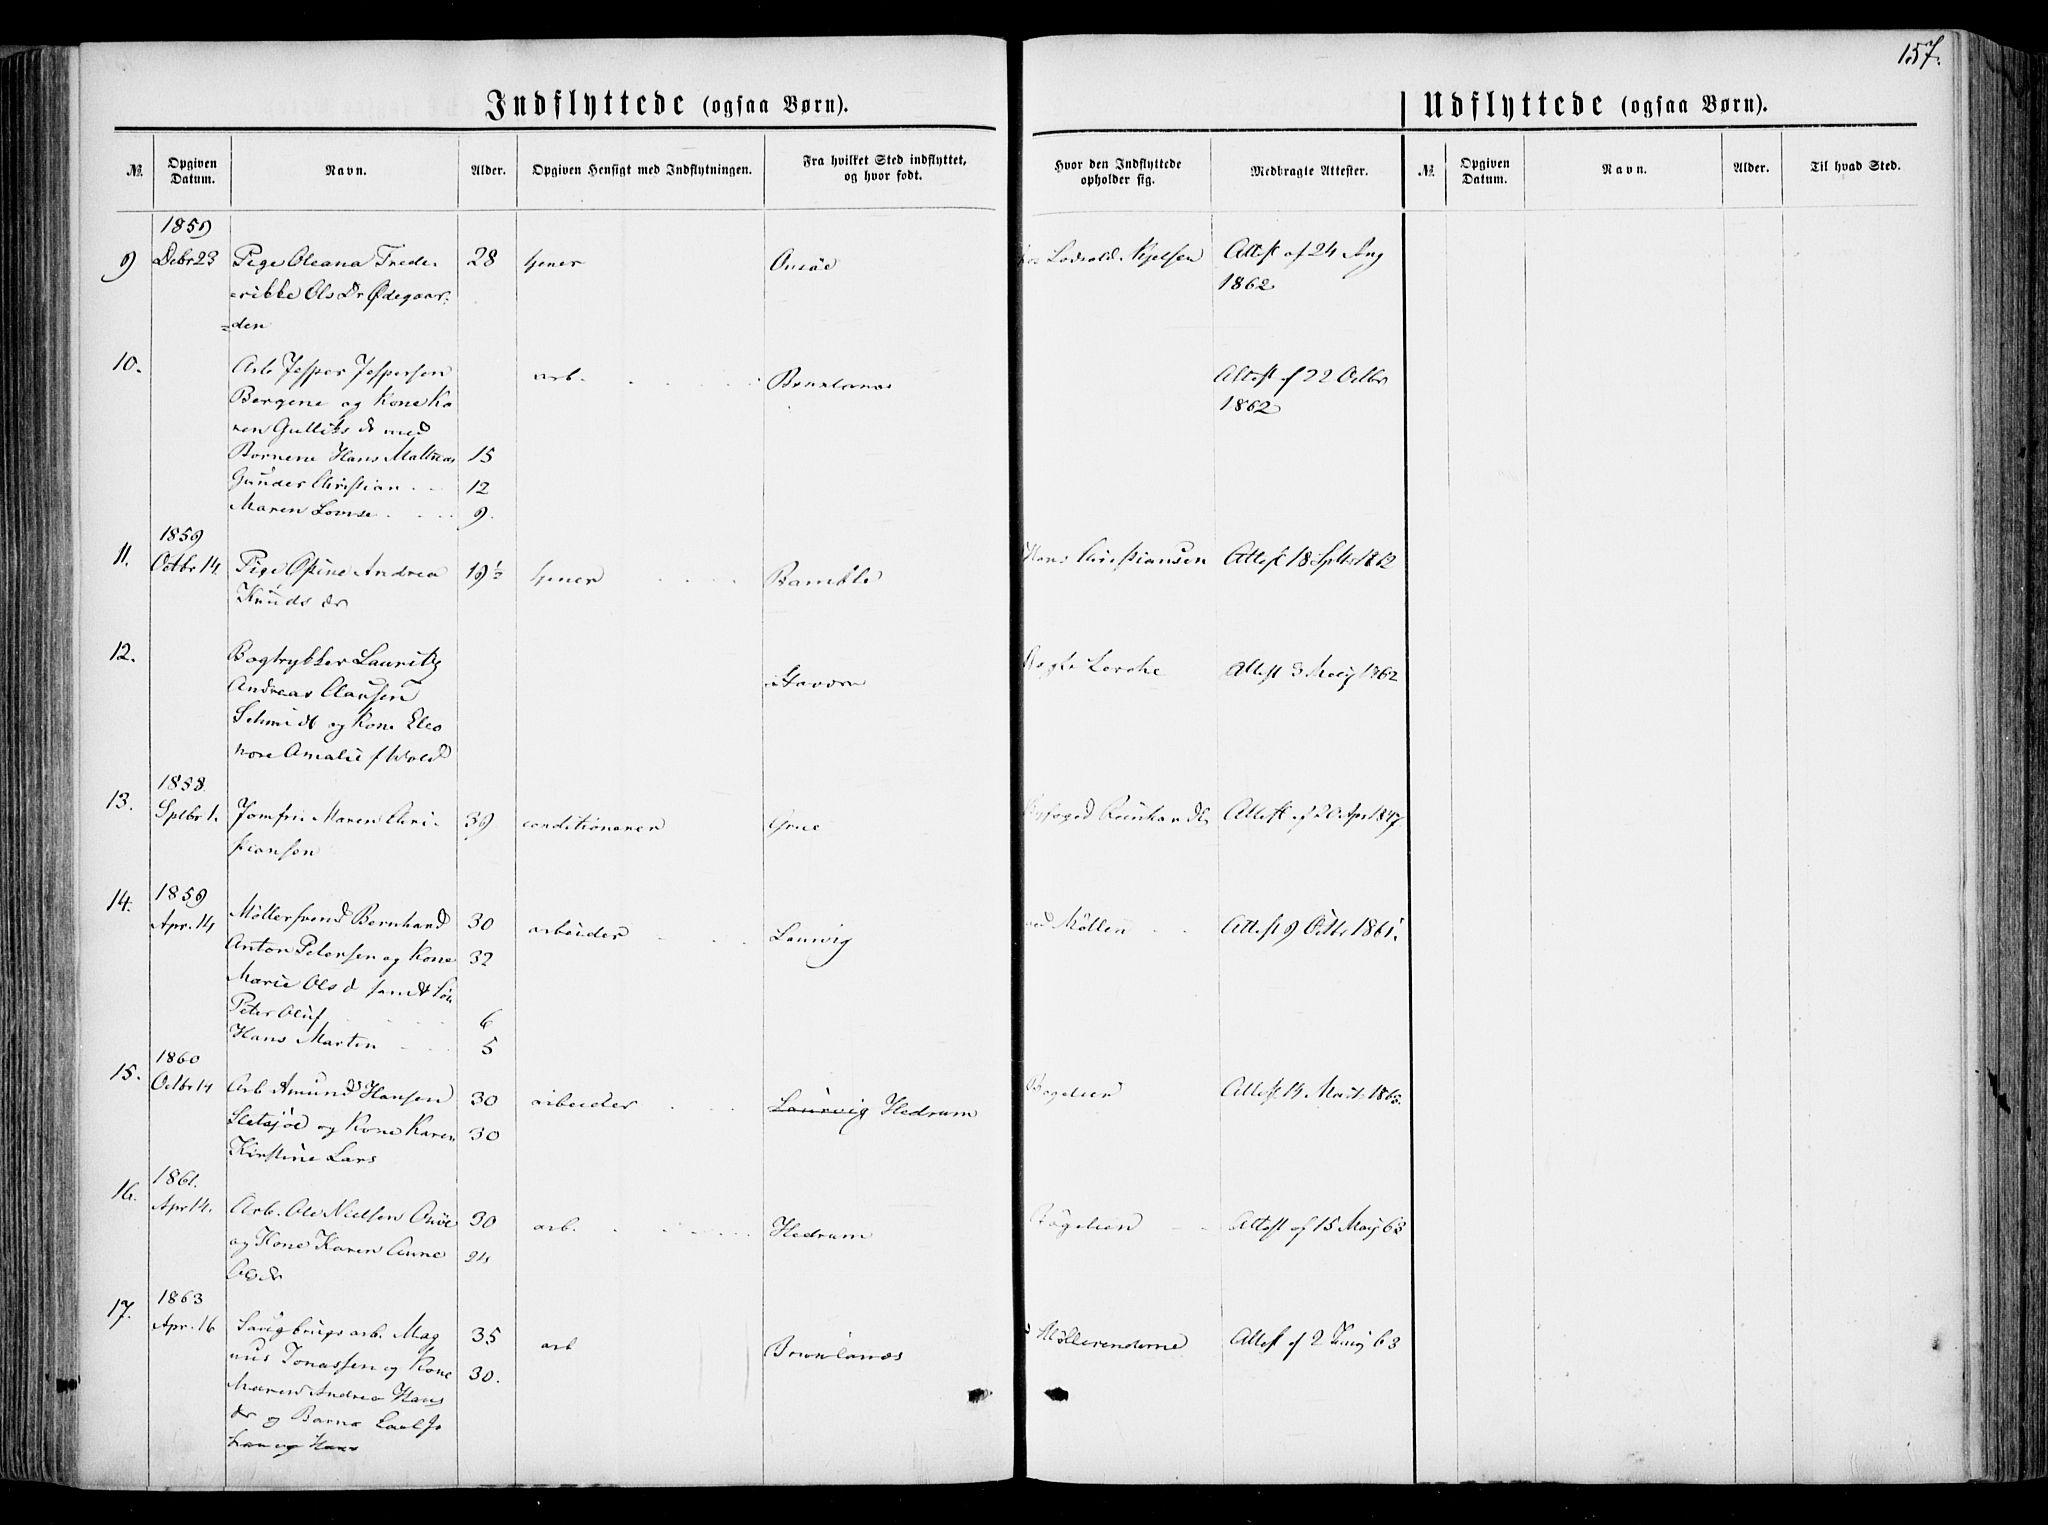 157.
Indflyttede (ogsaa Børn).
Udflyttede (ogsaa Børn).
№. Opgiven Datum. Navn. Alder. Opgiven Hensigt med Indflytningen. Fra hvilket Sted indflyttet, og hvor født. Hvor den Indflyttede opholder sig. Medbragte Attester. №. Opgiven Datum. Navn. Alder. Til hvad Sted.
1859
9 Debr 23 Pige Oleana Frede- 28 tjener Onsöe Kjelsen Attest af 24 Aug
erikke Ols Dr Ødegaar- 1862
=den
10. Arb Jesper Jespersen arb. Brunlanæs Attest af 22 Octbr
Bergene og Kone Ka 1862
ren Gulliks d med
Børnene Hans Mathias 15
Gunder Christian 12
Maren Lovise 9.
1859
11. Octbr 14. Pige Osine Andrea 19½ tjener Bamble Hans Christiansen Attest 18 Sptbr 1862
Knuds dr
12. Bogtrykker Lauritz Stavern Lerche Attest 3 Maij 1862
Andreas Clausen
Schmidt og Kone Eleo
nore Amalie f Wold
1858.
13. Sptbr 1. Jomfru Maren Chri- 39 conditionerer Grue Byfoged Reinhardt Attest af 20 Apr 1847
stiansen
1859
14. Apr. 14 Møllersvend Bernhard 30 arbeider Laurvig ved Møllen Attest 9 Octbr 1861.
Anton Petersen og Kone 32
Marie Ols d samt Søn
Peter Oluf 6
Hans Martin 5
1860
15. Octbr 14 Arb Amund Hansen 30 arbeider Laurvig Hedrum Bøgelien Attest 14 Marts 1863.
Sletsjöe og Kone Karen 30
Kirstine Lars
1861.
16. Apr 14. Arb. Ole Nielsen 30 arb. Hedrum Bøgelien Attest af 15 Maij 63
og Kone Karen Anne 24
Ols dr
1863
17. Apr. 16 Saugbrugs arb. Mag 35 arb Brunlanæs Møllerenderne Attest af 2 Junij 63
nus Jonassen og Kone 30.
Maren Andrea Hans
dr og Barne Carl Jo
han og Hans